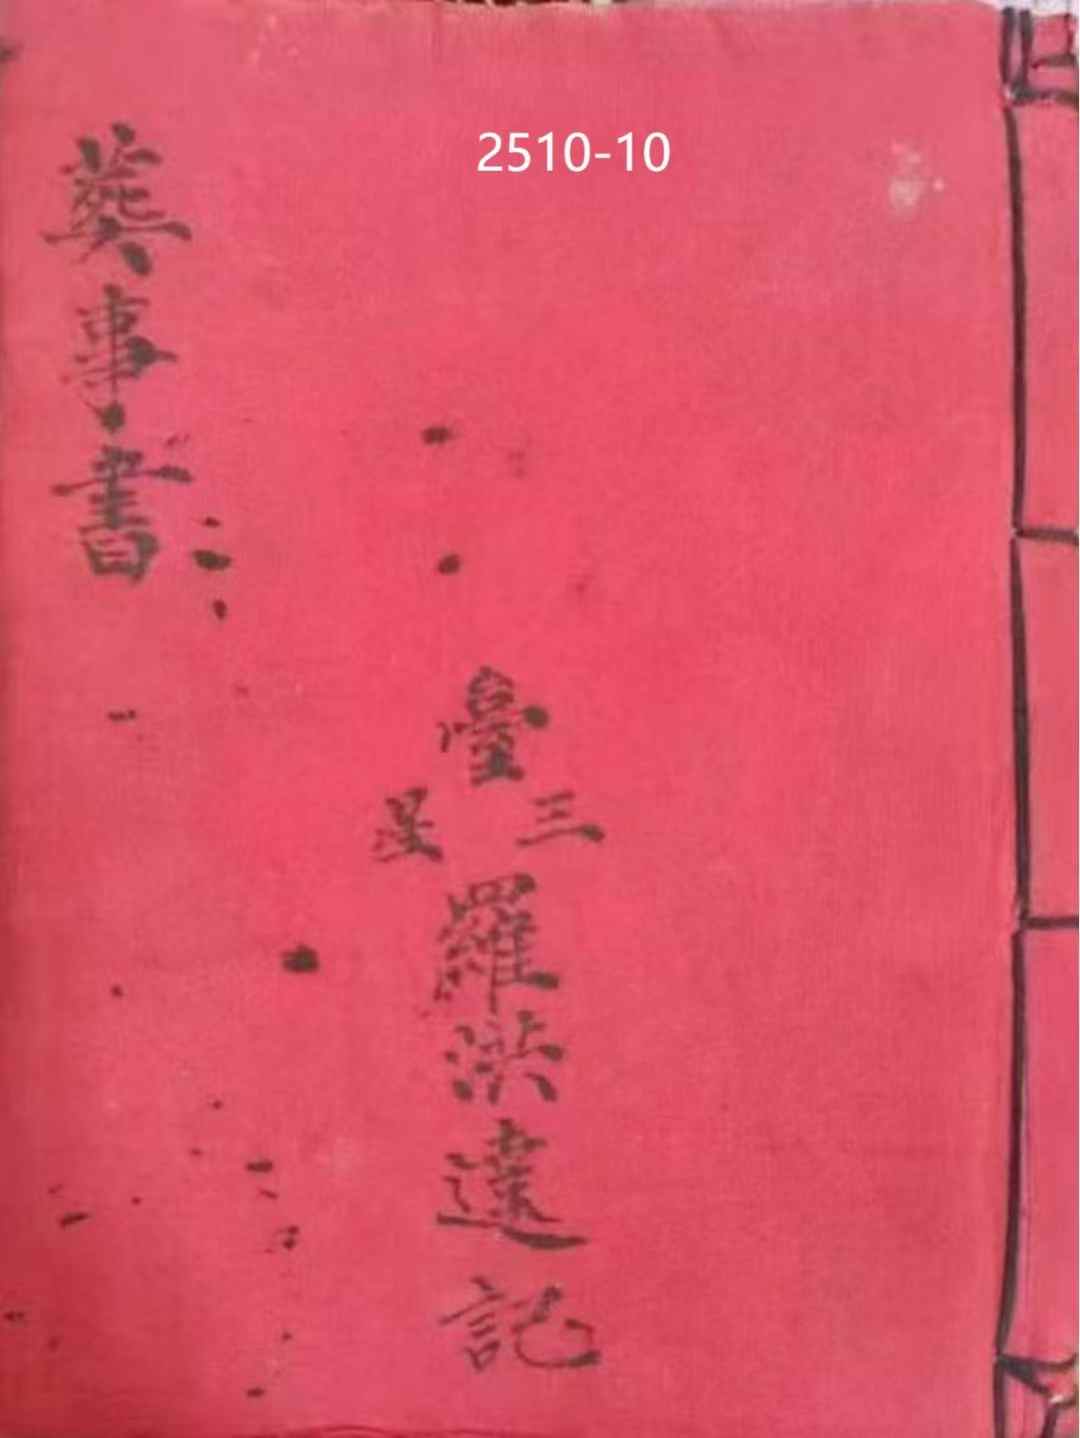 2510-10
臺三星羅洪達記
葬事書